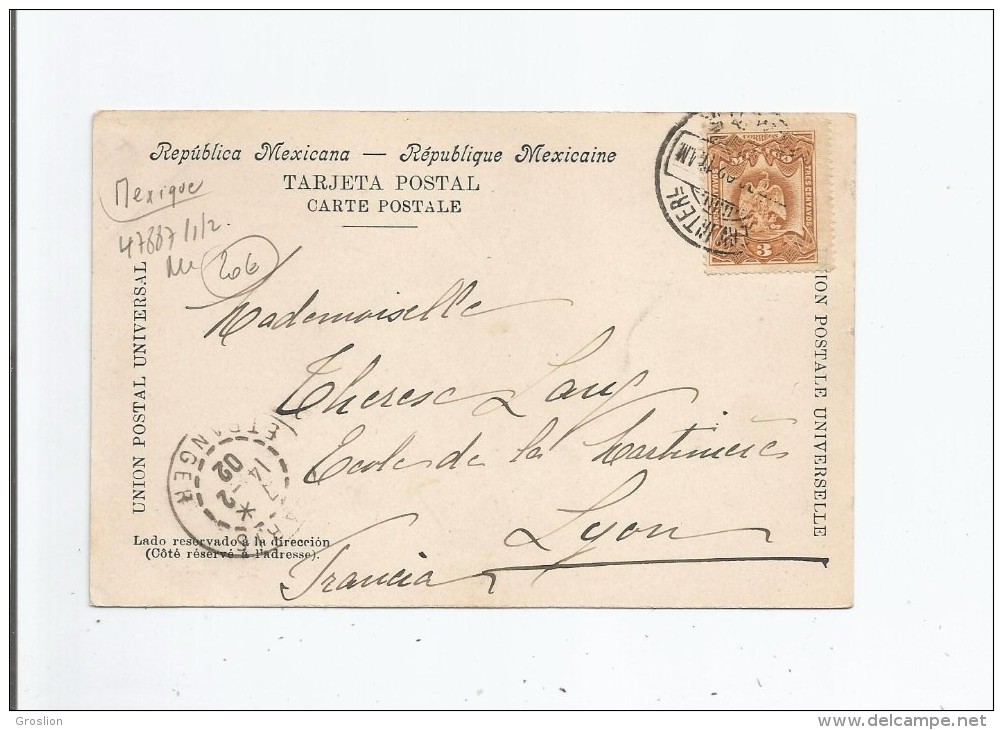 República Mexicana — République Mexicaine
TARJETA POSTAL
CARTE POSTALE
Mexique
47887/1/2
206
UNION POSTAL UNIVERSAL
ION POSTALE UNIVERSELLE
TRES CENTAVOS
3
INTERL
Mademoiselle
Therese Lauf
Ecole de la Martinière
Lyon
Francia
ETRANGER
02
Lado reservado a la dirección
(Côté réservé à l'adresse).
Groslion
www.delcampe.net